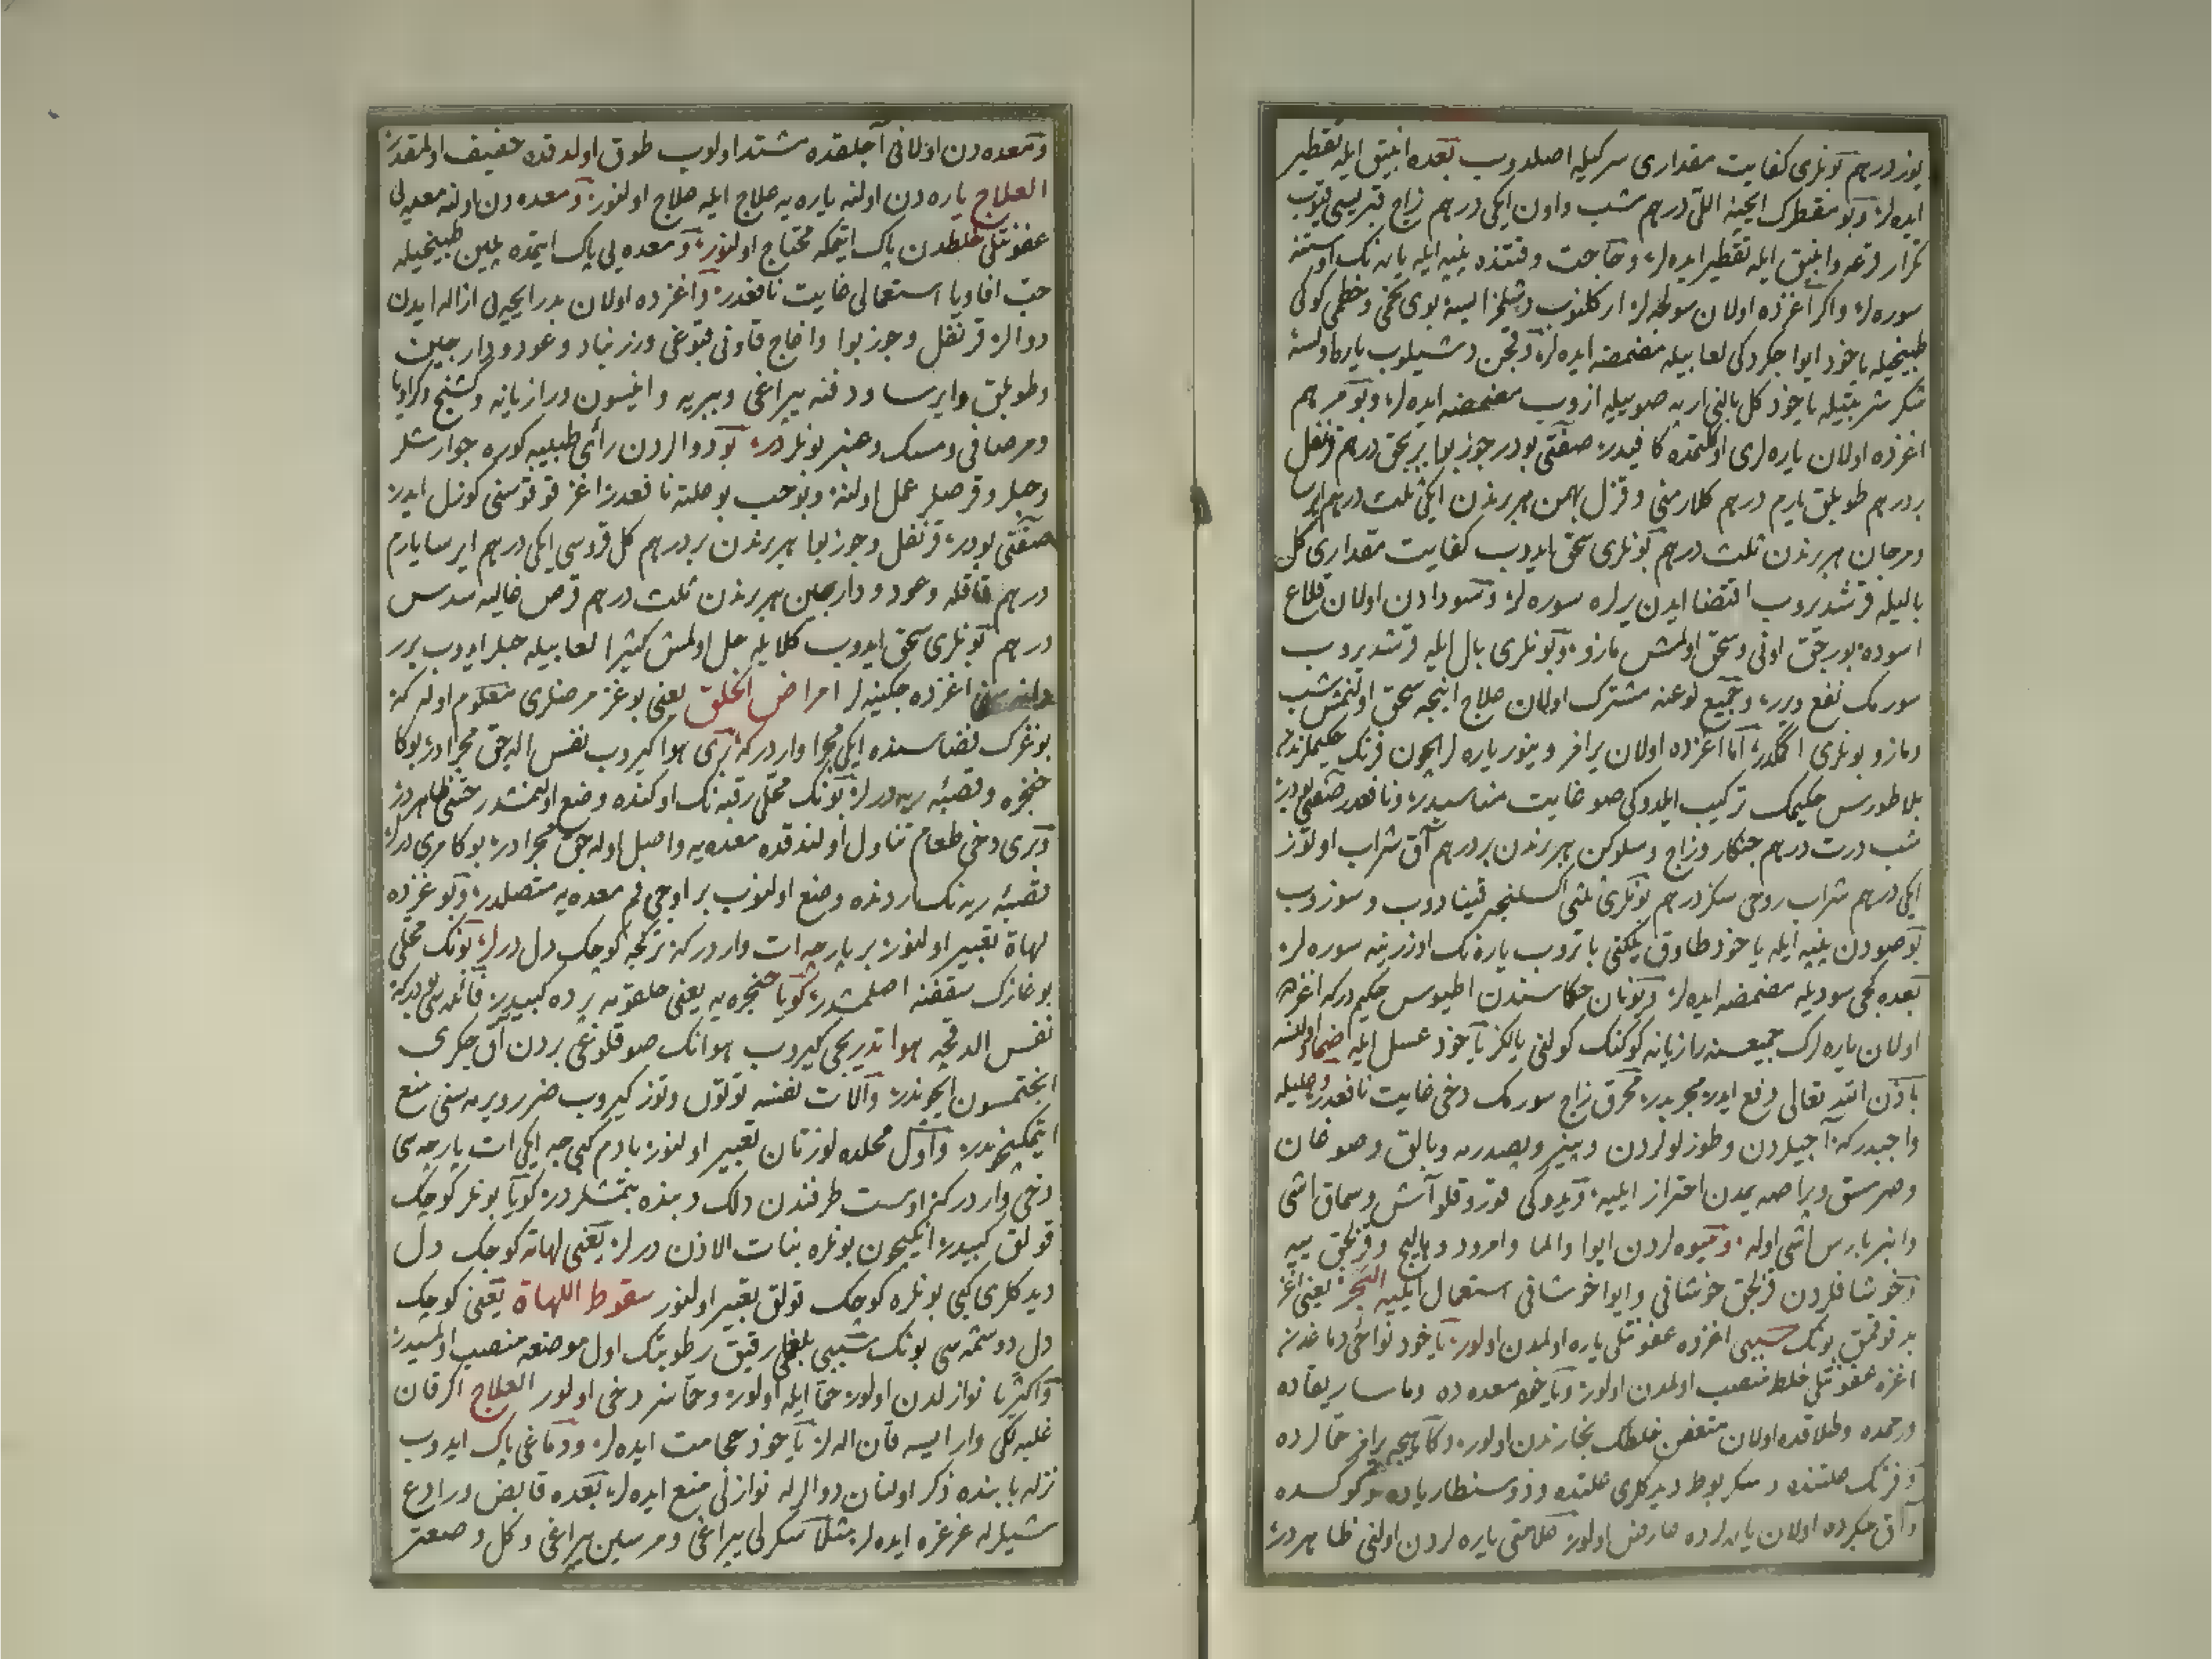 یوز درهم بونلری کفایت مقداری سرکیله اصلدوب بعده انبیق ایله تقطیر
ایده‌لر و بو مقطرک ایچینه اللی درهم شب و اون ایکی درهم زاج قبریسی قیوب
تکرار قرعه و انبیق ایله تقطیر ایده‌لر و حاجت وقتنده پنبه ایله یاره‌نک اوستنه
سوره‌لر و اکر اغزده اولان سولر ار کلنوب دشلمز ایسه بوی تخمی و خطمی کوکی
طبیخیله یاخود ایوا چکردکی لعابیله مضمضه ایده‌لر و قچن دشیلوب یاره اولسه
شکر شربتیله یاخود کل بالنی ارپه صوییله ازوب مضمضه ایده‌لر و بو مرهم
اغزده اولان یاره‌لری اوکلتمده کافیدر صفتی بودر جوز بوا بر بچق درهم قرنفل
بر درهم طوپلاق یارم درهم کل ارمنی و قزل بهمن هر برندن ایکی ثلث درهم ایرسا
و مرجان هر برندن ثلث درهم بونلری سحق ایدوب کفایت مقداری کل
بالیله قرشدیروب اقتضا ایدن یرلره سوره‌لر و سودادن اولان قلاع
اسوده بورچق اونی و سحق اولمش مازو و بونلری بال ایله قرشدیروب
سورمک نفع ویرر و جمیع نوعنه مشترک اولان علاج اینجه سحق اولنمش شب
و مازو بونلری اکمکدر اما اغزده اولان یرامز و ینور یاره‌لر ایچون فرنک حکیملرندن
بلاطورس حکیمک ترکیب ایلدوکی صو غایت مناسبدر و نافعدر صفتی بودر
شب درت درهم جنکار و زاج و سلوکن هر برندن بر درهم آق شراب اوتوز
ایکی درهم شراب روحی سکز درهم بونلری ثلثی اکسلنجه قیناددوب و سوزوب
بو صودن پنبه ایله یاخود طاوق یلکنی باتروب یاره‌نک اوزرینه سوره‌لر
بعده کچی سودیله مضمضه ایده‌لر و یونان حکماسندن اطیوس حکیم درکه اغزده
اولان یاره‌لرک جمیعسنه رازیانه کوکنک کولنی یالکز یاخود عسل ایله ضماد اولنسه
باذن الله تعالی دفع ایدر مجربدر محرق زاج سورمک دخی غایت نافعدر و علیله
واجبدرکه آجیلردن و طوزلولردن و پینیر و پصدرمه و بالق و صوغان
و صرمسق و پراصه یمدن احتراز ایلیه و یدوکی قوروقلو آش و سماق اشی
و انبرباریس اشی اوله و میوه‌لردن ایوا و الما و امرود و هلیلج و قزلجق ییه
و خوشافلردن قزلجق خوشافی و ایوا خوشافی استعمال ایلیه البخر یعنی اغز
بد قوقمق بونک سببی اغزده عفونتلی یاره اولمدن اولور یاخود نواحی دماغدن
اغزه عفونتلی خلط منصب اولمدن اولور و یاخود معده‌ده و ماساریقاده
و رحمده و طلاقده اولان متعفن خلطک بخارندن اولور و کاهیجه یرامز حمالرده
و فرنک علتنده و سکربوط دیدکلری علتده و ذوسنطاریاده و کوکسده
و آق جکرده اولان یاره‌لرده عارض اولور علامتی یاره‌لردن اولنی ظاهردر
و معده‌دن اولانی آجلقده مشتد اولوب طوق اولدقده خفیف اولمقدر
العلاج یاره‌دن اولنه یاره‌یه علاج ایله علاج اولنور و معده‌دن اولنه معده‌یی
عفونتلی خلطدن پاک ایتمکه محتاج اولنور و معده‌یی پاک ایتمده پلین طبیخیله
حب افاویا استعمالی غایت نافعدر و اغزده اولان بد رایحه‌یی ازاله ایدن
دوالر قرنفل و جوز بوا و اغاج قاونی قبوغی و زرنباد و عود و دارچین
و طوپلاق و ایرسا و دفنه یپراغی و بیبریه و انیسون و رازیانه و کشنیج و کراویا
و مرصافی و مسک و عنبر بونلردر بو دوالردن رأی طبیبه کوره جوارشلر
و حبلر و قرصلر عمل اولنه و بو حب بو علته نافعدر اغز قوقوسنی کوزل ایدر
صفتی بودر قرنفل و جوز بوا هر برندن بر درهم کل قروسی ایکی درهم ایرسا یارم
درهم قاقله و عود و دارچین هر برندن ثلث درهم قرص غالیه سدس
درهم بونلری سحق ایدوب کلابله حل اولمش کثیرا لعابیله حبلر ایدوب برر
دانه‌سنی اغزده چکینه‌لر امراض الحلق یعنی بوغز مرضلری معلوم اوله که
بوغزک فضاسنده ایکی مجرا واردر که بری هوا کیروب نفس اله‌جق مجرادر بوکا
حنجره و قصبه ریه درلر بونک محلی رقبه‌نک اوکنده وضع اولنمشدر حتی ظاهردر
و بری دخی طعام تناول اولندقده معده‌یه واصل اوله‌جق مجرادر بوکا مری درلر
قصبه ریه‌نک اردنده وضع اولنوب بر اوجی فم معده‌یه متصلدر و بوغزده
لهاة تعبیر اولنور بر پارچه ات واردر که ترکجه کوچک دل درلر بونک محلی
بوغازک سقفنه اصلمشدر کویا حنجره‌یه یعنی حلقومه پرده کبیدر فائده‌سی بودر که
نفس الدقچه هوا تدریجی کیروب هوانک صوقلوغی بردن آق جکری
اینجتمسون ایچوندر و آلات نفسه توتون و توز کیروب ضرر ویرمه‌سنی منع
ایتمکیچوندر و اول محلده لوزتان تعبیر اولنور بادم کبی جه ایکی ات پارچه‌سی
دخی واردر که اوست طرفندن دلک دبنده بتمشلردر کویا بونلر کوچک
قولاق کبیدر انکیچون بونلره بنات الاذن درلر یعنی لهاته کوچک دل
دیدکلری کبی بونلره کوچک قولاق تعبیر اولنور سقوط اللهاة یعنی کوچک
دل دوشمه‌سی بونک سببی بلغمی رقیق رطوبتک اول موضعه منصب اولمسیدر
و اکثریا نوازلدن اولور حما ایله اولور و حماسز دخی اولور العلاج اکر قان
غلبه‌لکی وار ایسه قان اله‌لر یاخود حجامت ایده‌لر و دماغی پاک ایدوب
نزله بابنده ذکر اولنان دوالرله نوازلی منع ایده‌لر بعده قابض و رادع
شیلرله غرغره ایده‌لر مثلا سکرلی یپراغی و مرسین یپراغی و کل و صعتر